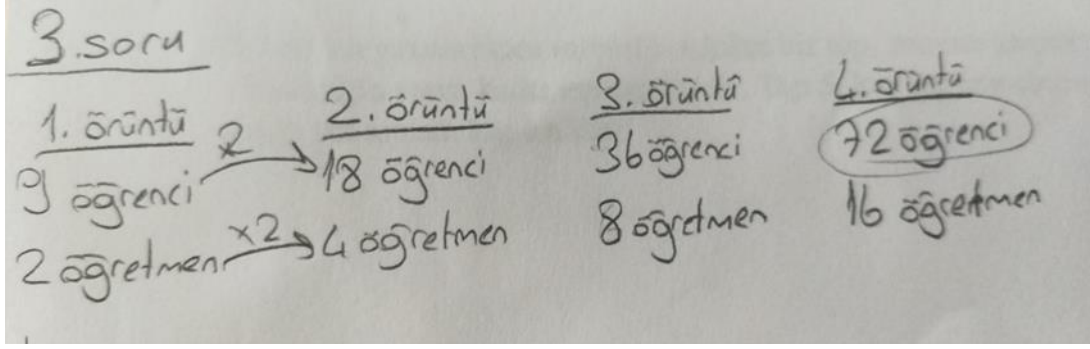 3. soru
1. örüntü
9 öğrenci
2 öğretmen
2
x2
2. örüntü
18 öğrenci
4 öğretmen
3. örüntü
36 öğrenci
8 öğretmen
4. örüntü
72 öğrenci
16 öğretmen